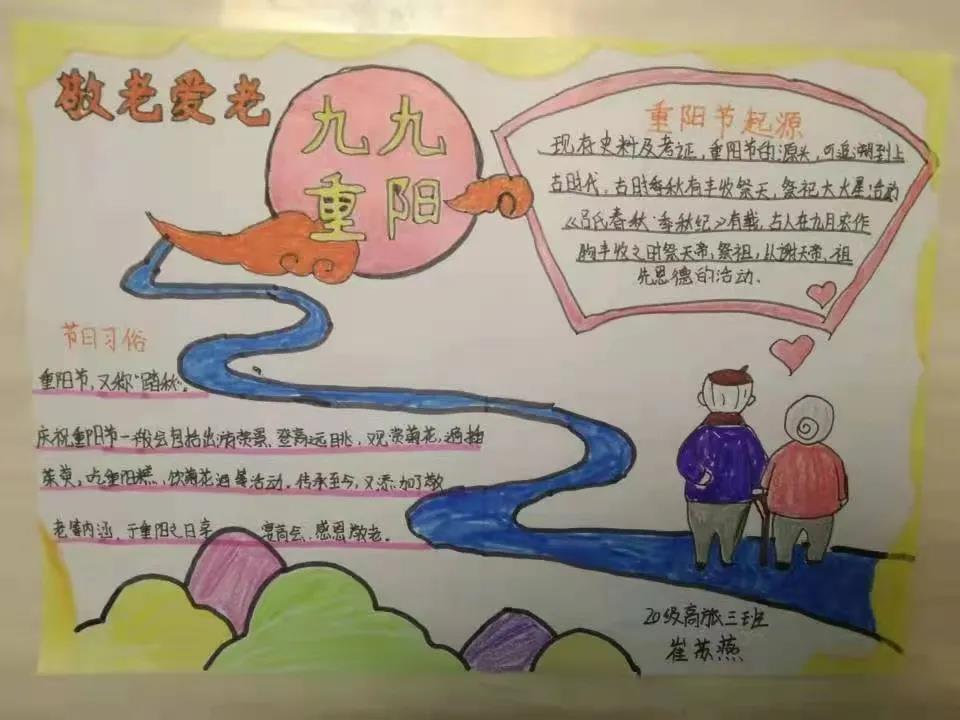 敬老爱老
九九
重阳
重阳节起源
现存史料及考证，重阳节的源头，可追溯到上
古时代，古时每秋有丰收祭天，祭祀大火星活动
《吕氏春秋·季秋纪》有载，古人在九月农作
物丰收之时祭天帝，祭祖，以谢天帝、祖
先恩德的活动．
节日习俗
重阳节，又称“踏秋”。
庆祝重阳节一般会包括出游赏景、登高远眺，观赏菊花，遍插
茱萸，吃重阳糕、饮菊花酒等活动．传承至今，又添加了敬
老等内涵，于重阳之日享 宴高会，感恩敬老。
20级高旅三班
崔苏燕